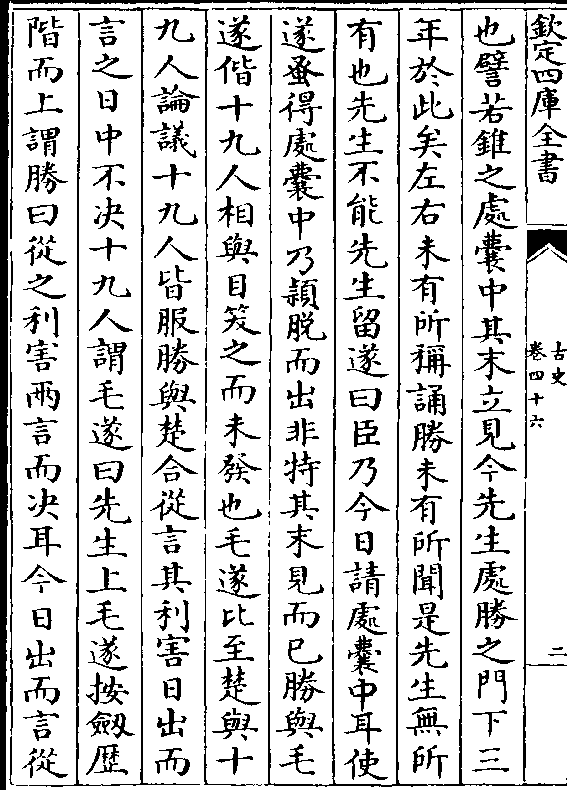 欽定四庫全書
古史
卷四十六
二
也譬若錐之處囊中其末立見今先生處勝之門下三
年於此矣左右未有所稱誦勝未有所聞是先生無所
有也先生不能先生留遂曰臣乃今日請處囊中耳使
遂蚤得處囊中乃穎脫而出非特其末見而已勝與毛
遂偕十九人相與目笑之而未發也毛遂比至楚與十
九人論議十九人皆服勝與楚合從言其利害日出而
言之日中不決十九人謂毛遂曰先生上毛遂按劔歴
階而上謂勝曰從之利害兩言而決耳今日出而言從